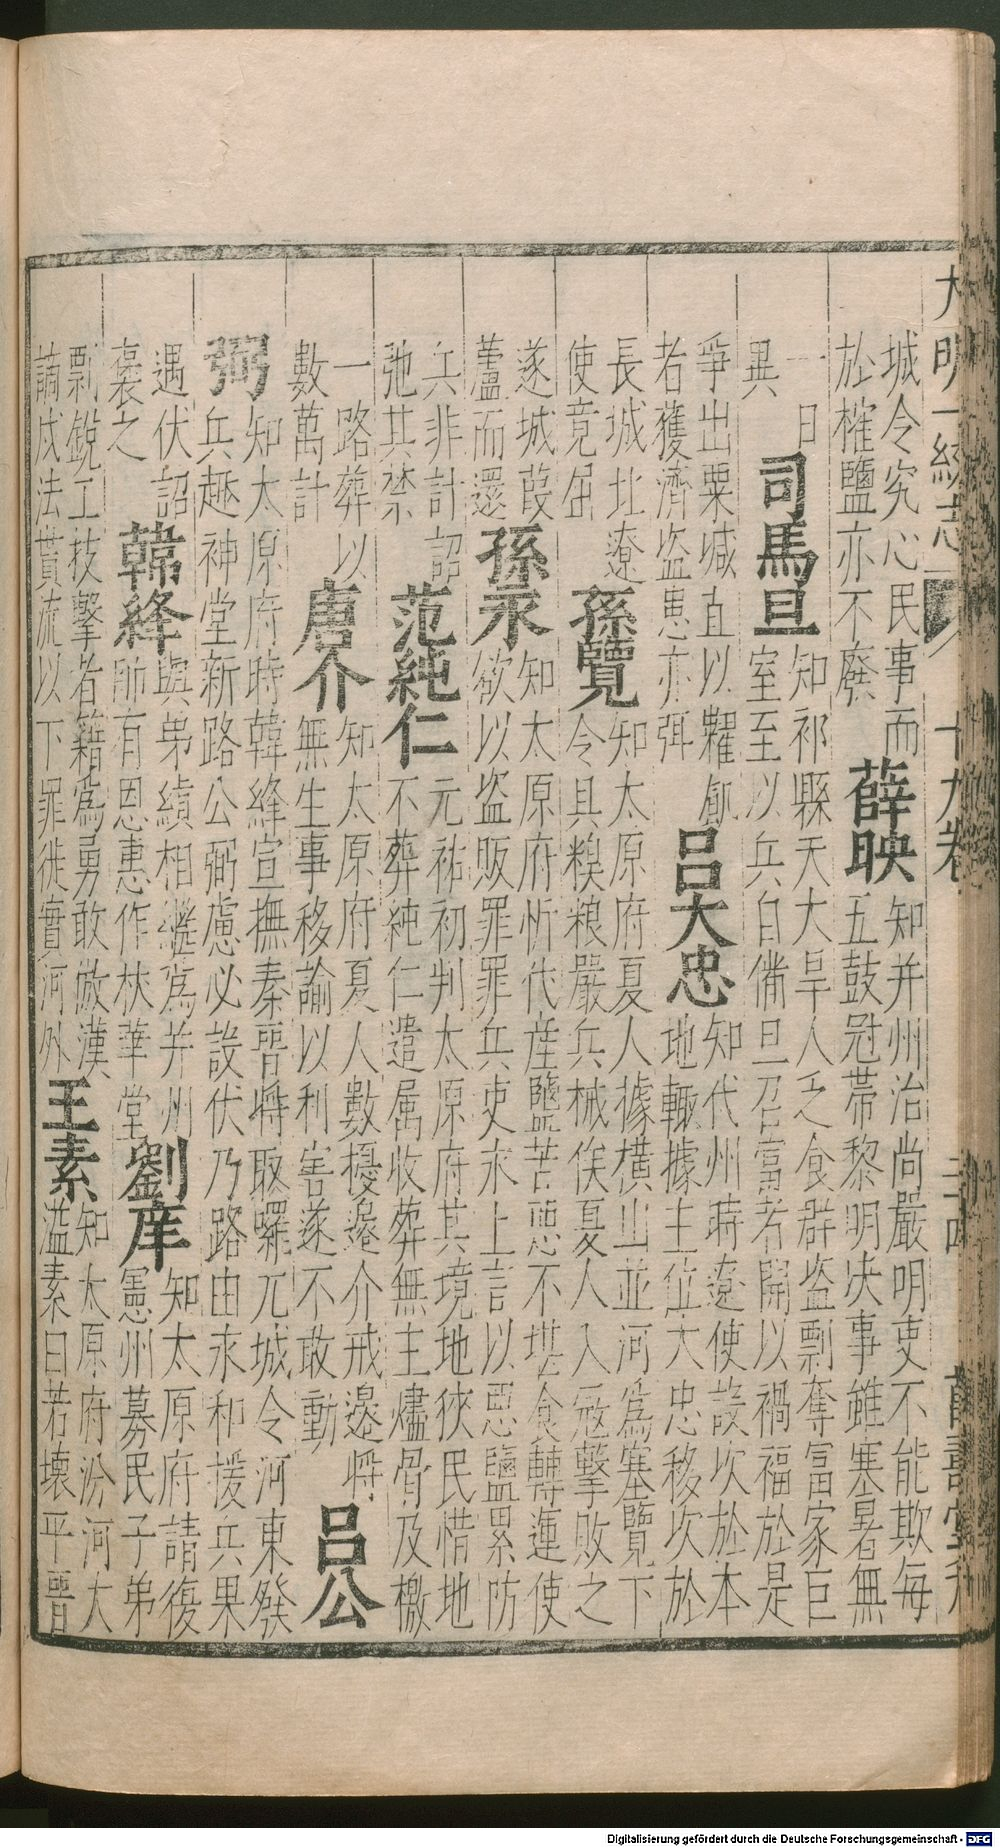 大明一統志 十九卷 三十四 萬壽堂刋
城令究心民事而
於榷鹽亦不廢
薛映
知并州治尚嚴明吏不能欺每
五鼓冠帯黎明决事雖寒暑無
一日
異
司馬旦
知祁縣天大旱人乏食群盗剽奪富家巨
室至以兵自備旦召富者開以禍福於是
爭出粟减直以糶飢
者獲濟盗患亦弭
呂大忠
知代州時遼使設次於本
地輙據主位大忠移次於
長城北遼
使竟屈
孫覽
知太原府夏人據横山並河為塞覽下
令具糗粮嚴兵械俟夏人入冦擊敗之
遂城葭
蘆而還
孫永
知太原府忻代産鹽苦惡不堪食轉運使
欲以盗販罪罪兵吏永上言以惡鹽累防
兵非計詔
弛其禁
范純仁
元祐初判太原府其境地狹民惜地
不葬純仁遣属收葬無主燼骨及檄
一路葬以
數萬計
唐介
知太原府夏人數擾邉介戒邊將
無生事移諭以利害遂不敢動
呂公
弼
知太原府時韓絳宣撫秦晋將取囉兀城令河東發
兵趍神堂新路公弼慮必設伏乃路由永和援兵果
遇伏詔
褒之
韓絳
與弟績相繼為并州
所有恩惠作棣華堂
劉庠
知太原府請復
憲州募民子弟
剽銳工技擊者籍為勇敢倣漢
謫戍法貰流以下罪徙實河外
王素
知太原府汾河大
溢素曰若壊平晋
Digitalisierung gefördert durch die Deutsche Forschungsgemeinschaft - DFG